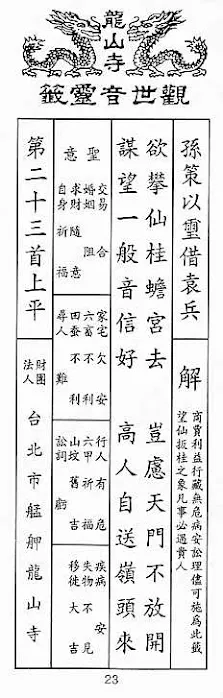 龍山寺
觀世音靈籤
孫策以璽借袁兵
解
商賈利益行藏無危病安訟理儘可施為此籤
望仙扳桂之象凡事必遇貴人
欲攀仙桂蟾宮去 豈慮天門不放開
謀望一般音信好 高人自送嶺頭來
聖意
交易 合
婚姻 阻
求財隨意
自身祈福
家宅欠安
六畜不利
田蚕不利
尋人 難
行人有危
六甲祈福
山坟舊吉
訟詞 虧
疾病 安
失物不見
移徙大吉
第二十三首上平
財團法人
台北市艋舺龍山寺
23